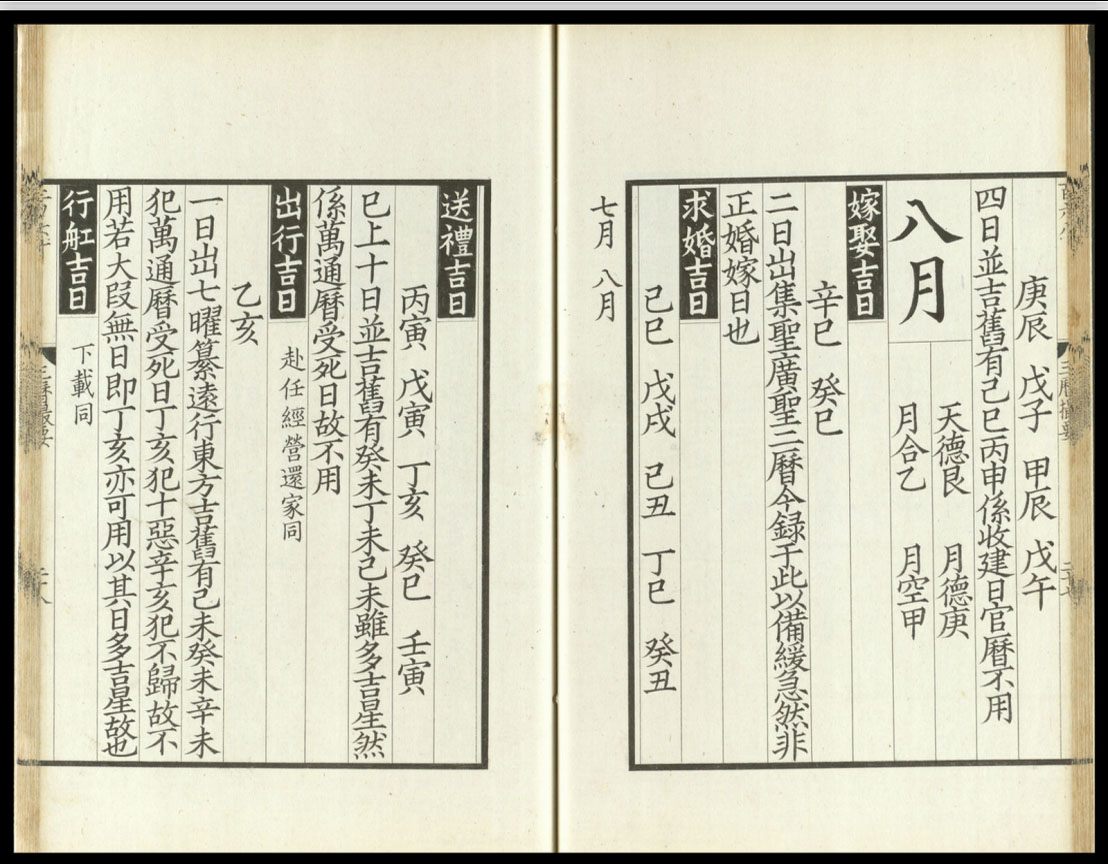 庚辰 戊子 甲辰 戊午
四日並吉舊有己巳丙申係收建日官曆不用
八月
天德艮 月德庚
月合乙 月空甲
嫁娶吉日
辛巳 癸巳
二日出集聖廣聖二曆今録于此以備緩急然非
正婚嫁日也
求婚吉日
己巳 戊戌 己丑 丁巳 癸丑
七月 八月
送禮吉日
丙寅 戊寅 丁亥 癸巳 壬寅
已上十日並吉舊有癸未丁未己未雖多吉星然
係萬通曆受死日故不用
出行吉日 赴任經營還家同
乙亥
一日出七曜纂遠行東方吉舊有己未癸未辛未
犯萬通曆受死日丁亥犯十惡辛亥犯不歸故不
用若大段無日即丁亥亦可用以其日多吉星故也
行舡吉日 下載同